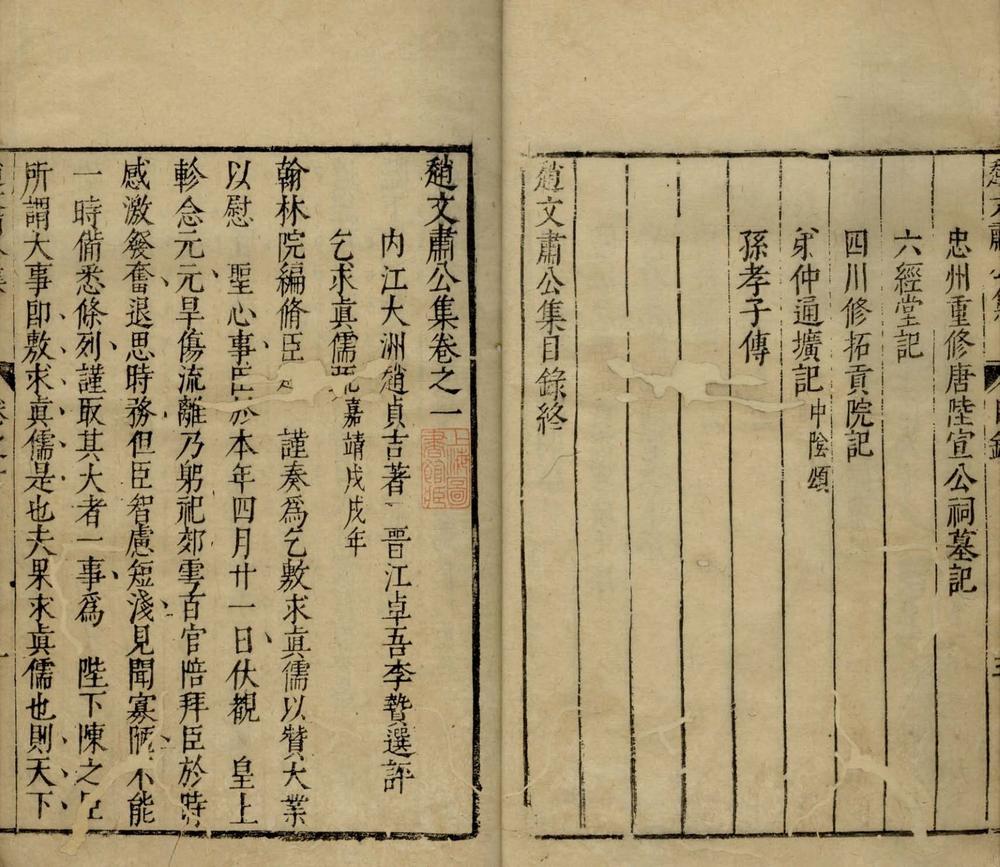 忠州重修唐陸宣公祠墓記
六經堂記
四川修拓貢院記
弟仲通壙記中陰頌
孫孝子傳
趙文肅公集目錄終
趙文肅公集卷之一
內江大洲趙貞吉著 晉江卓吾李贄選評
乞求眞儒疏嘉靖戊戌年
翰林院編脩臣 謹奏爲乞敷求眞儒以贊大業
以慰 聖心事臣於本年四月廿一日伏覩 皇上
軫念元元旱傷流離乃躬祀郊雩百官陪拜臣於時
感激發奮退思時務但臣智慮短淺見聞寡陋不能
一時備悉條列謹取其大者一事爲 陛下陳之臣
所謂大事即敷求眞儒是也夫果求眞儒也則天下
上海圖書館藏